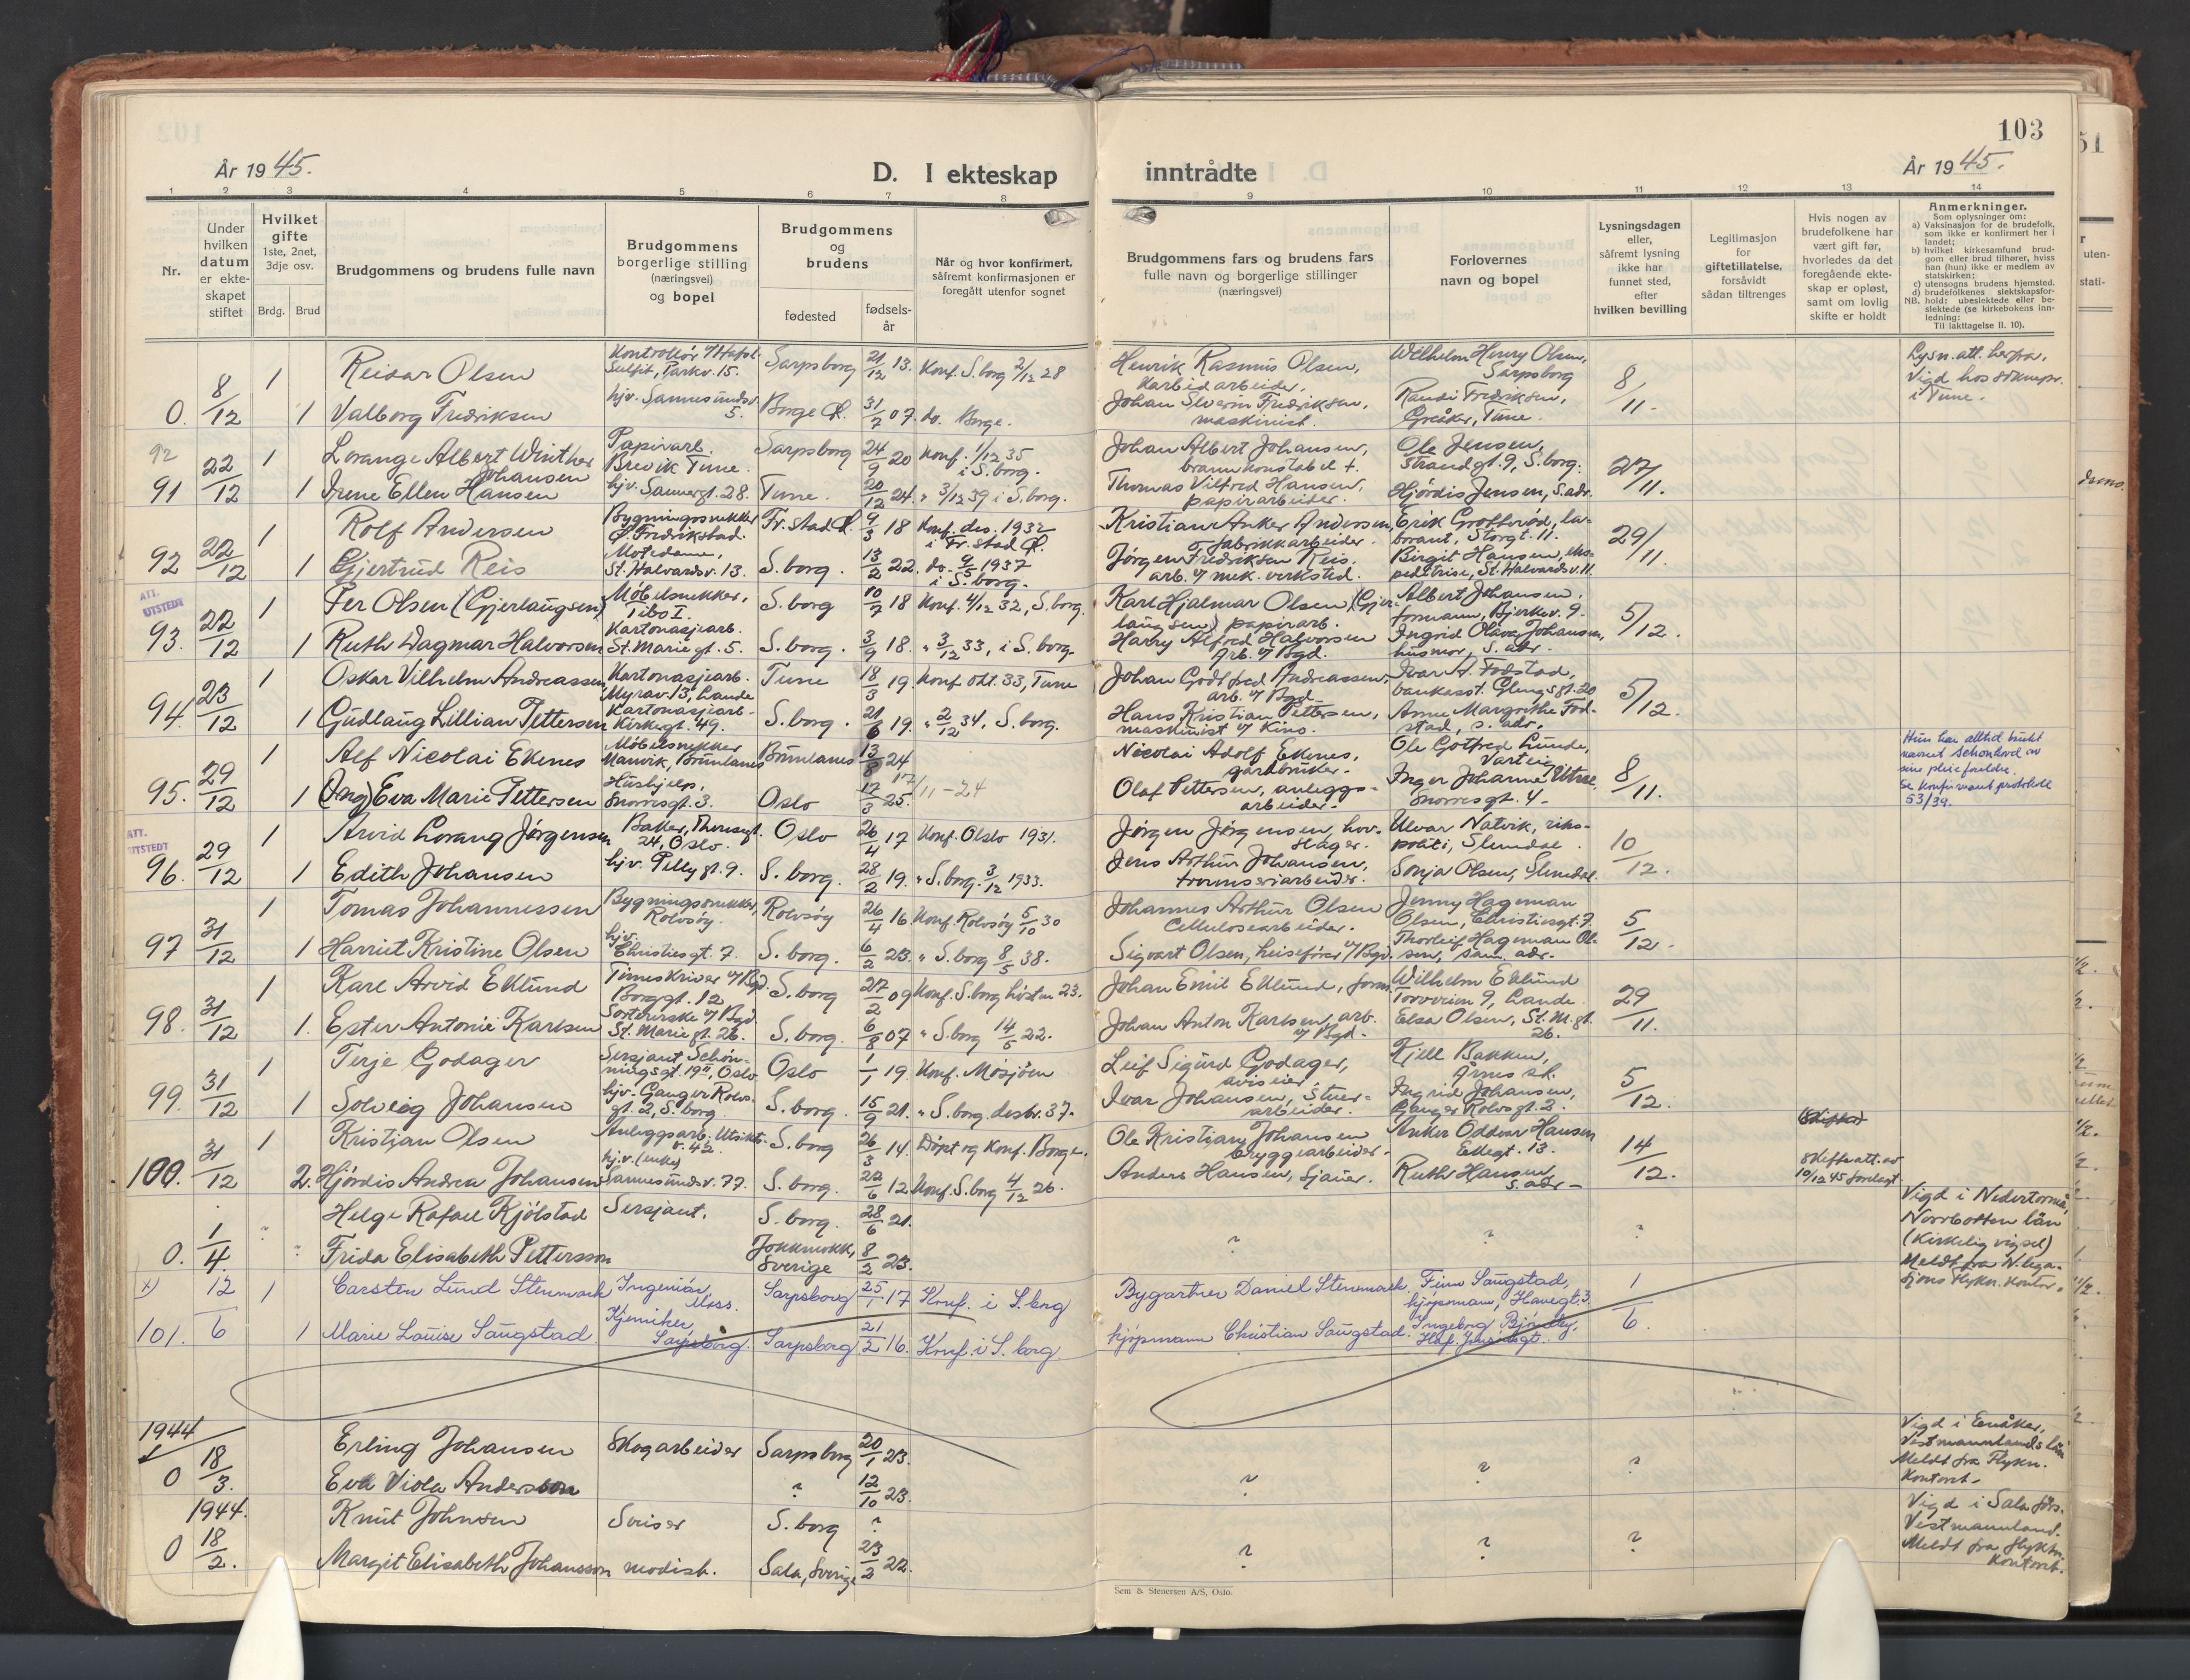 103
År 1945.
D. I ekteskap
inntrådte
År 1945.
1 2 3 4 5 6 7 8 9 10 11 12 13 14
Nr.
Under hvilken datum er ekteskapet stiftet
Hvilket gifte
1ste, 2net, 3dje osv.
Brdg. Brud
Brudgommens og brudens fulle navn
Brudgommens borgerlige stilling (næringsvei) og bopel
Brudgommens og brudens
fødested
fødsels-år
Når og hvor konfirmert, såfremt konfirmasjonen er foregått utenfor sognet
Brudgommens fars og brudens fars fulle navn og borgerlige stillinger (næringsvei)
Forlovernes navn og bopel
Lysningsdagen eller, såfremt lysning ikke har funnet sted, efter hvilken bevilling
Legitimasjon for giftetillatelse, forsåvidt sådan tiltrenges
Hvis nogen av brudefolkene har vært gift før, hvorledes da det foregående ekteskap er opløst, samt om lovlig skifte er holdt
Anmerkninger.
Som oplysninger om:
a) Vaksinasjon for de brudefolk, som ikke er konfirmert her i landet;
b) hvilket kirkesamfund brudgom eller brud tilhører, hviss han (hun) ikke er medlem av statskirken;
c) utensogns brudens hjemsted.
d) brudefolkenes slektskapsforhold: ubeslektede eller beslektede (se kirkebokens innledning:
NB.
Til iakttagelse II. 10).
0. 8/12 1 Reidar Olsen Kontrollør v/Hafsl. Sulfit, Parkv. 15. Sarpsborg 21/12 13. Konf. S.borg 2/12 28 Henrik Rasmus Olsen, Karbidarbeider. Wilhelm Henry Olsen, Sarpsborg 8/11. Lysn.att. herfra. Vigd hos sokнepr. i Tune.
1 Valborg Fredriksen hjv. Sannesundsv. 5. Borge Ø. 31/7 07. do. Borge. Johan Severin Fredriksen, maskinist. Randi Fredriksen, Greåker, Tune.
92
91 22/12 1 Lorange Albert Winther Johansen Papirarb. Brevik Tune. Sarpsborg 24/9 20 Konf. 1/12 35 i S.borg. Johan Albert Johansen, brannkonstabel +. Ole Jensen, Strandgt. 9, S.borg. 27/11.
1 Irene Ellen Hansen hjv. Sannergt. 28. Tune. 20/12 24. " 3/12 39 i S.borg. Thomas Vilfred Hansen, papirarbeider. Hjördis Jensen, s.adr.
92 22/12 1 Rolf Andersen Bygningssnekker Ø. Fredrikstad. Fr.stad Ø. 9/3 18 Konf. des. 1932 i Fr.stad Ø. Kristian Anker Andersen, fabrikkarbeider. Erik Grofferød, laborant, Storgt. 11. 29/11.
1 Gjertrud Reis Motedame, St. Halvardsv. 13. S.borg. 13/2 22. do. 9/5 1937 i S.borg. Jørgen Fredriksen Reis, arb. v/ mek. verksted. Birgit Hansen, ekspeditrise, St. Halvardsv. 11.
ATT. UTSTEDT
93. 22/12 1 Per Olsen (Gjerlaugsen) Møbelsnekker, Tibo I. S.borg 10/9 18 Konf. 4/12 32, S.borg. Karl Hjalmar Olsen (Gjerlaugsen) papirarb. Albert Johansen, formann, Bjerkev. 9. 5/12.
1 Ruth Dagmar Halvorsen Kartonasjearb. St. Marie gt. 5. S.borg. 3/9 18. " 3/12 33, i S.borg. Harry Alfred Halvorsen Arb. v/ Bgd. Ingrid Olava Johansen, husmor, s. adr.
94. 23/12 1 Oskar Vilhelm Andreassen Kartonasjearb. Myrav. 13, Lande Tune 18/3 19. Konf. okt. 33, Tune Johan Godtfred Andreassen, arb. v/ Bgd. Ivar A. Fodstad, bankasst. Glengsgt. 20 5/12.
1 Gudlaug Lillian Pettersen Kartonasjearb. Kirkegt. 49. S.borg. 21/6 19. " 2/12 34, S.borg. Hans Kristian Pettersen, maskinist v/ Kino. Anne Margrethe Fodstad, s. adr.
95. 29/12 1 Alf Nicolai Ekenes Møbelsnekker Manvik, Brunlanes Brunlanes 13/8 24 Nicolai Adolf Ekenes, gårdbruker. Ole Gotfred Lunde, Varteig 8/11.
1 (Ing) Eva Marie Pettersen Hushjelp, Snorresgt. 3. Oslo 17/3 25. 17/11-24 Olaf Pettersen, anleggsarbeider. Inger Johanne Vitsø, Snorresgt. 4
Hun har alltid brukt navnet Schønhovd av sine pleieforeldre. Se konfirmant protokoll 53/39.
ATT. UTSTEDT
96. 29/12 1 Arvid Lorang Jørgensen Baker, Theresegt. 24, Oslo. Oslo 26/4 17 Konf. Oslo 1931. Jørgen Jørgensen, hovslager. Ulvar Natvik, rikspoliti, Slemdal. 10/12.
1 Edith Johansen hjv. Pellygt. 9. S.borg. 28/2 19. " S.borg. 3/12 1933. Jens Arthur Johansen, tromseriarbeider. Sonja Olsen, Slemdal.
97 31/12 1 Tomas Johannessen Bygningssnekker, Rolvsøy. Rolvsøy 26/4 16 Konf. Rolvsøy 5/10 30 Johannes Arthur Olsen Cellulosearbeider. Jenny Hageman Olsen, Christiesgt. 7 5/12.
1 Harriet Kristine Olsen hjv. Christiesgt. 7. S.borg. 6/2 23. " S.borg 8/5 38. Sigvart Olsen, heisefører v/ Bgd. Thorleif Hageman Olsen, sam. adr.
98. 31/12 1 Karl Arvid Eklund Timeskriver v/ Bgd. Borggt. 12 S.borg 27/2 09 Konf. S.borg høsten 23. Johan Emil Eklund, form. Wilhelm Eklund Torvveien 9, Lande. 29/11.
1. Ester Antonie Karlsen Sorterirske v/ Bgd. St. Marie gt. 26. S.borg. 6/8 07 " S.borg 14/5 22. Johan Anton Karlsen, arb. v/ Bgd. Elsa Olsen, St. M. gt. 26.
99. 31/12 1 Terje Godager Sersjant, Schønningsgt. 19 II, Oslo. Oslo 1/1 19. Konf. Mosjøen Leif Sigurd Godager, aviseier. Kjell Bakken, Årnes st. 5/12.
1 Solveig Johansen hjv. Ganger Rolvs gt. 2, S.borg S.borg. 15/9 21. " S.borg. desbr. 37. Ivar Johansen, Stuerarbeider. Ingrid Johansen, Ganger Rolvsgt. 2.
100. 31/12 1 Kristian Olsen Anleggsarb. Utsiktsv. 42. S.borg 26/3 14. Døpt og konf. Borge. Ole Kristian Johansen bryggearbeider. Anker Oddvar Hansen Ekegt. 13. 14/12.
2. Hjördis Andrea Johansen hjv. (enke) Sannesundsv. 77. S.borg. 22/6 12 Konf. S.borg 4/12 26. Anders Hansen, Sjauer. Ruth Hansen, s. adr.
(Skifte) Skifteatt. av 10/12 45 forelagt
0. 1/4. ? Helge Rafael Kjölstad Sersjant. S.borg. 28/6 21. ? ? ?
Frida Elisabeth Pettersson Jokkmokk, Sverige 8/2 23.
Vigd i Nedertorneå, Norrbotten län (Kirkelig vigsel) Meldt fra N. legasjons flykn. kontor.
x) 101. 12/6 1 Carsten Lund Stenmark Ingeniør, Moss. Sarpsborg 25/1 17 Konf. i S.borg Bygartner Daniel Stenmark. Finn Saugstad, kjøpmann, Havegt. 3. 1/6.
1 Marie Louise Saugstad Kjemiker, Sarpsborg. Sarpsborg 21/2 16. Konf. i S.borg. kjøpmann Christian Saugstad. Ingeborg Bjørnby,
1944
0 18/3. Erling Johansen Skogarbeider Sarpsborg 20/1 23. ? ? ?
Eva Viola Andersson ? 12/10 23.
Vigd i Enåker, Vestmannlands län Meldt fra Flykn. Kontoret.
1944.
0 18/2. Knut Johnsen S.borg ? ? ? ?
Margit Elisabeth Johansson modist. Sala, Sverige 23/2 22.
Vigd i Sala förs. Vestmannland. Meldt fra flyktn. Kontoret.
Sem & Stenersen A/S, Oslo.